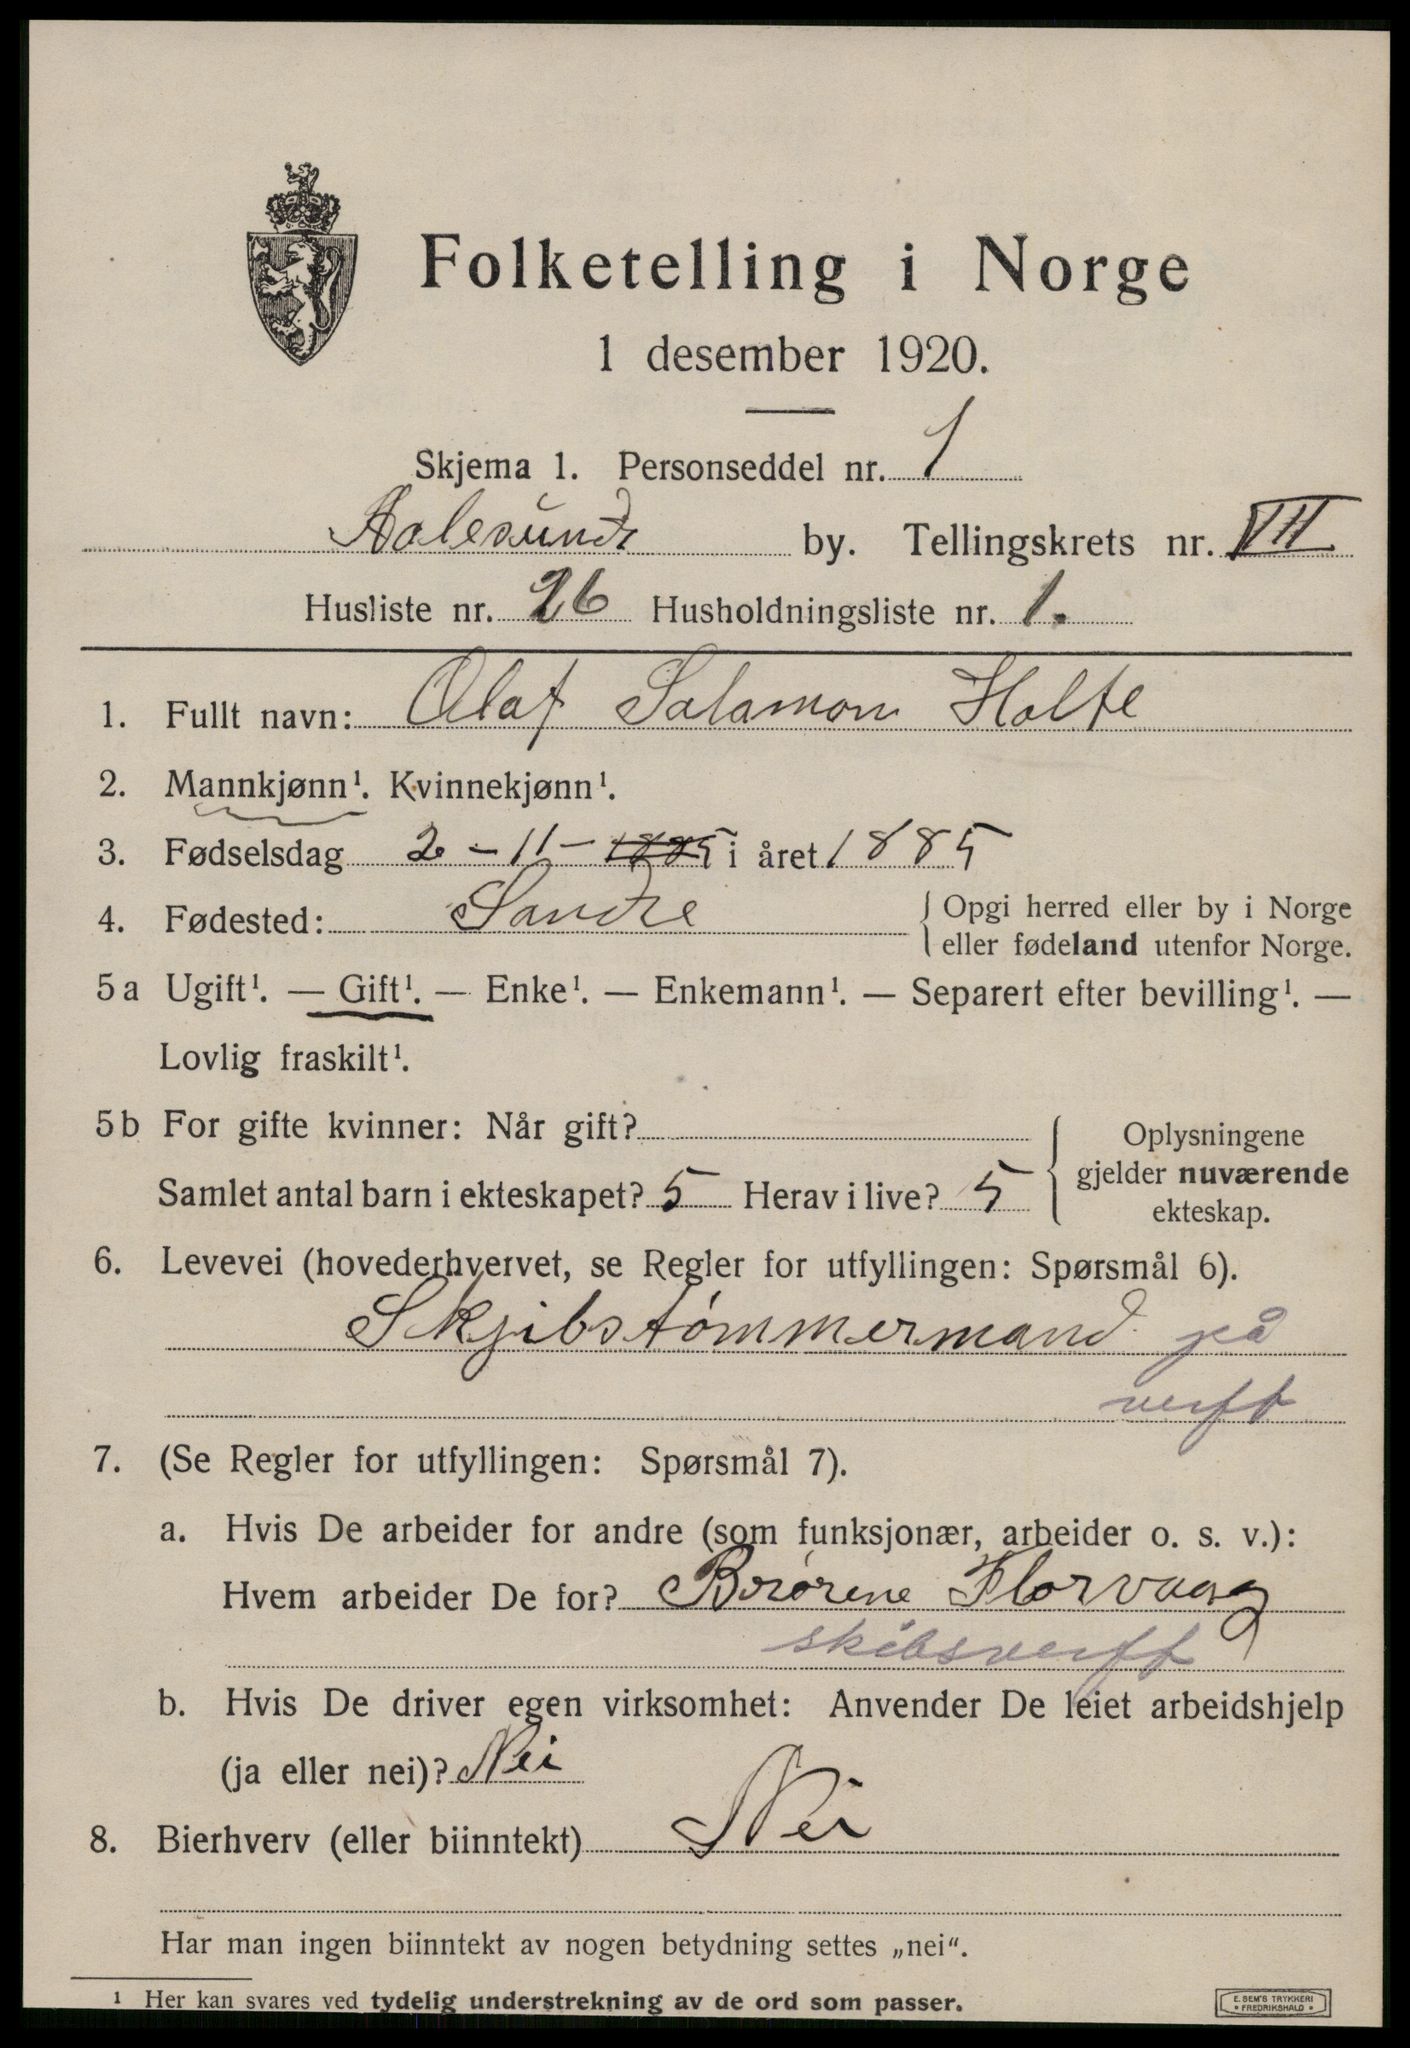 Folketelling i Norge
1 desember 1920.
Skjema 1. Personseddel nr. 1
Aalesunds by. Tellingskrets nr. VII
Husliste nr. 26 Husholdningsliste nr. 1.
1. Fullt navn: Olaf Salamon Holte
2. Mannkjønn¹. Kvinnekjønn¹.
3. Fødselsdag 2 - 11 - 1885 i året 1885
4. Fødested: Sandre { Opgi herred eller by i Norge
eller fødeland utenfor Norge.
5 a Ugift¹. — Gift¹. — Enke¹. — Enkemann¹. — Separert efter bevilling¹. —
Lovlig fraskilt¹.
5 b For gifte kvinner: Når gift? { Oplysningene
gjelder nuværende
ekteskap.
Samlet antal barn i ekteskapet? 5 Herav i live? 5
6. Levevei (hovederhvervet, se Regler for utfyllingen: Spørsmål 6).
Skjibstømmermand på
verft
7. (Se Regler for utfyllingen: Spørsmål 7).
a. Hvis De arbeider for andre (som funksjonær, arbeider o. s. v.):
Hvem arbeider De for? Brørene Florvaag
skibsverft
b. Hvis De driver egen virksomhet: Anvender De leiet arbeidshjelp
(ja eller nei)? Nei
8. Bierhverv (eller biinntekt) Nei
Har man ingen biinntekt av nogen betydning settes „nei".
¹ Her kan svares ved tydelig understrekning av de ord som passer.
E. SEM'S TRYKKERI
• FREDRIKSHALD •